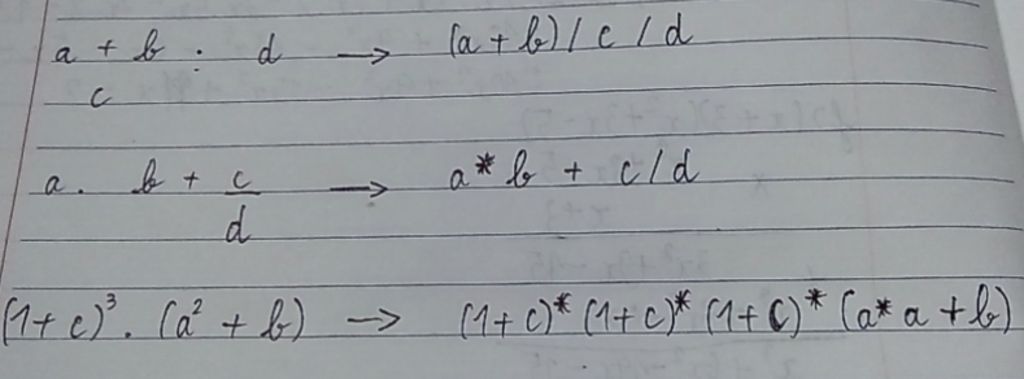 a + b : d → (a + b) / c / d
c
a . b + c/d → a * b + c / d
(1 + c)³ . (a² + b) → (1 + c) * (1 + c) * (1 + c) * (a * a + b)